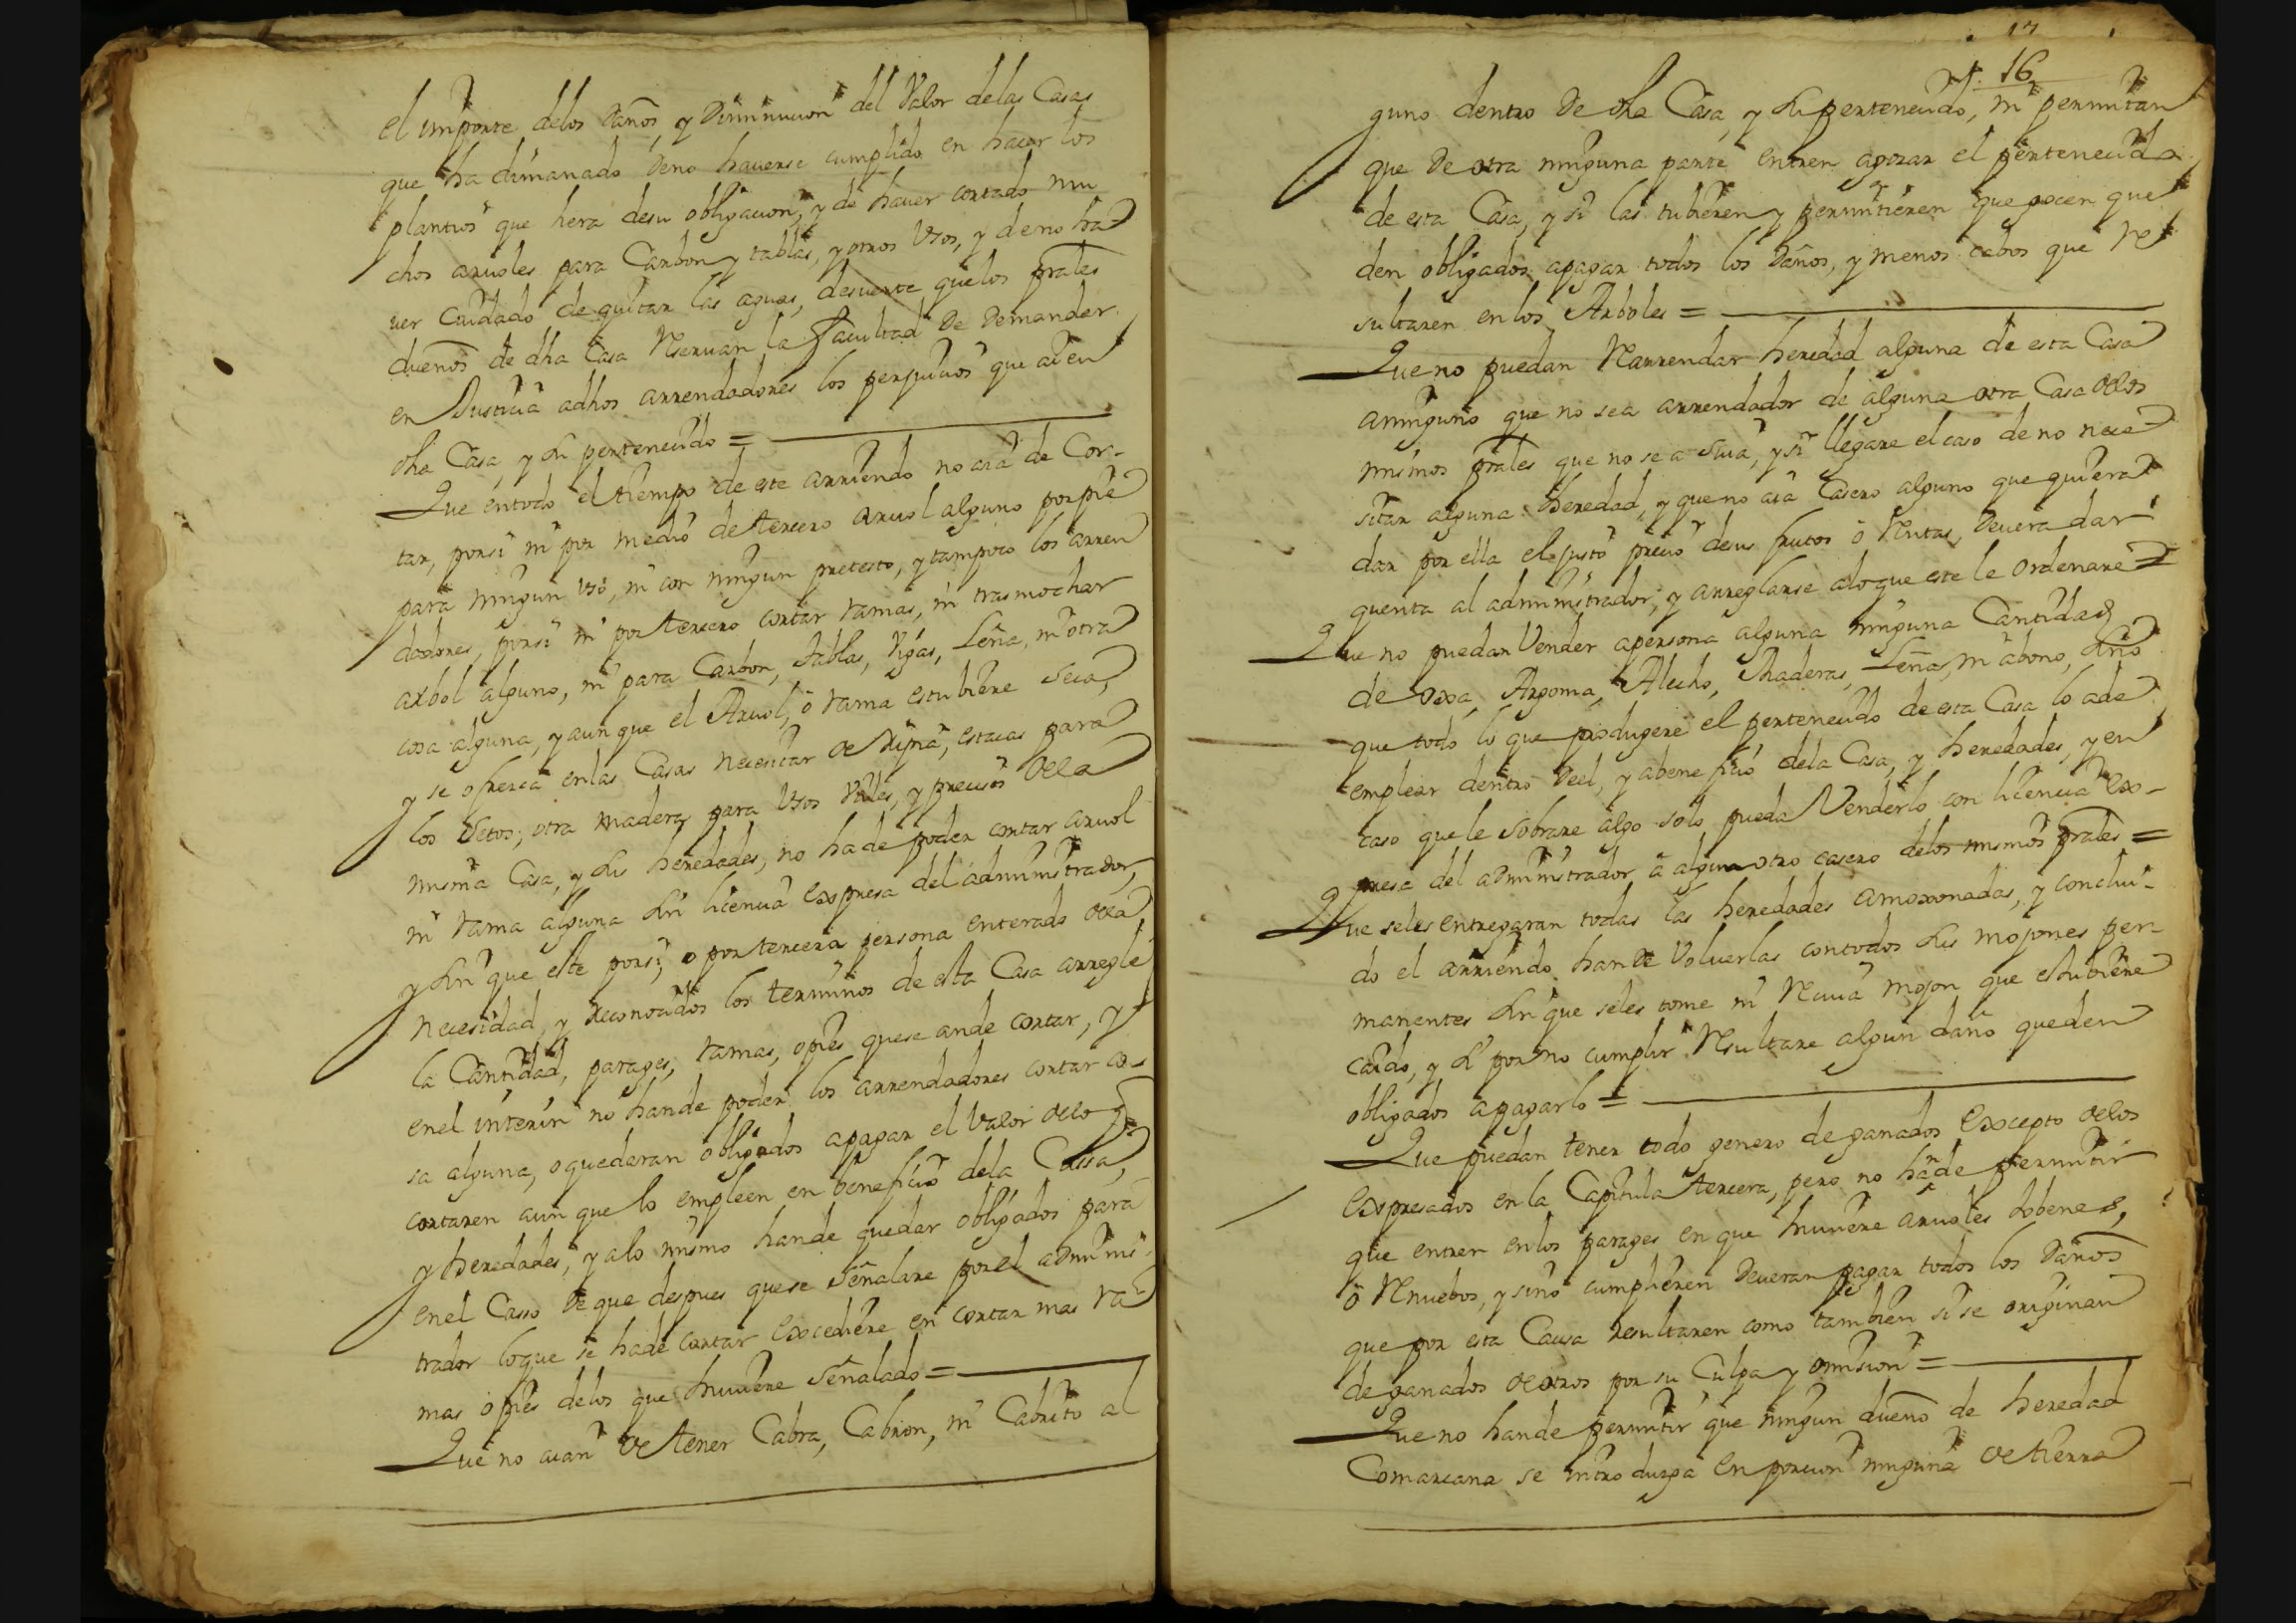 el importe delos Daños, y Diminucion del Valor delas Casas
que ha dimanado deno hauerse cumplido en hacer los
plantios que hera desu obligacion, y de hauer cortado mu
chos aruoles para Carbon y tablas, y otros Vsos, y deno ha
uer Cuidado de quitar las aguas, desuerte quelos prales
dueños de dha Casa Reseruan la facultad De Demandar
en Justicia adhos arrendadores los perjuicios que aien
dha Casa, y su pertenecido =
Que entodo el tiempo de este arriendo no aia de Cor-
tar, porsi ni por medio de tercero aruol alguno por pie
para ningun Vso, ni con ningun pretesto, y tampoco los arren
dadores, porsi ni por tercero cortar ramas, ni trasmochar
arbol alguno, ni para Carbon, tablas, Vigas, Leña, ni otra
cosa alguna, y aunque el Aruol, ó rama estubiere Seca,
y se ofrezca enlas Casas necesitar de Ripia, estacas para
los Setos; otra madera para Vsos Vtiles, y precisos dela
misma Casa, y sus heredades, no hade poder cortar aruol
ni rama alguna sin licencia expresa del administrador,
y sin que este porsi, o por tercera persona enterado dela
necesidad, y reconocidos los terminos de esta Casa arregle
la Cantidad, parages, ramas, opies quese ande cortar, y
enel interin no hande poder los arrendadores cortar co-
sa alguna, o quedaran obligados apagar el Valor delo q.e
cortaren aun que lo empleen en beneficio dela Cassa,
y heredades, y alo mismo hande quedar obligados para
enel Casso De que despues quese señalare porel adminis-
trador loque se hade cortar excediere en cortar mas ra
mas o pies delos que huuiere Señalado =
Que no aian de tener Cabra, Cabron, ni Cabrito al
17
16
guno dentro De dha Casa, y su pertenecido, ni permitan
que De otra ninguna parte entren agozar el pertenecido
de esta Casa, y si las tubieren y permitieren que gocen que
den obligados apagar todos los Daños, y menos cabos que re
sultaren en los Arboles =
Que no puedan Rarrendar heredad alguna de esta Casa
aninguno que no sea arrendador de alguna otra Casa delos
mismos prales que no sea Suia, y si llegare el caso de no nece
sitar alguna heredad, y que no aia Casero alguno que quiera
dar por ella el justo precio desus frutos ó Rentas, Deuera dar
quenta al administrador, y arreglarse aloque este le ordenare =
Que no puedan Vender apersona alguna ninguna Cantidad
de oxa, Argoma, Alecho, Maderas, Leñas, ni abono, sino
que todo lo que produgere el pertenecido de esta Casa lo ade
emplear dentro Deel, y abeneficio dela Casa, y heredades, y en
caso que le Sobrare algo solo pueda Venderlo con licencia ex-
presa del administrador á algun otro casero delos mismos prales =
Que seles entregaran todas las heredades amoxonadas, y conclui-
do el arriendo han De Voluerlas contodos sus mojones per
manentes sin que seles tome ni Reciua mojon que estubiere
caido, y si por no cumplir Resultare algun daño queden
obligados apagarlo =
Que puedan tener todo genero de ganados Excepto delos
Expresados en la Capitula tercera, pero no hande permitir
que entren enlos parages en que huuiere aruoles Jobenes,
ó Renuebos, y sino cumplieren Deueran pagar todos los Daños
que por esta Causa resultaren como tambien si se originan
de ganados de otros por su Culpa y omision =
Que no hande permitir que ningun dueño de heredad
Comarcana se introduzga en porcion ninguna de tierra